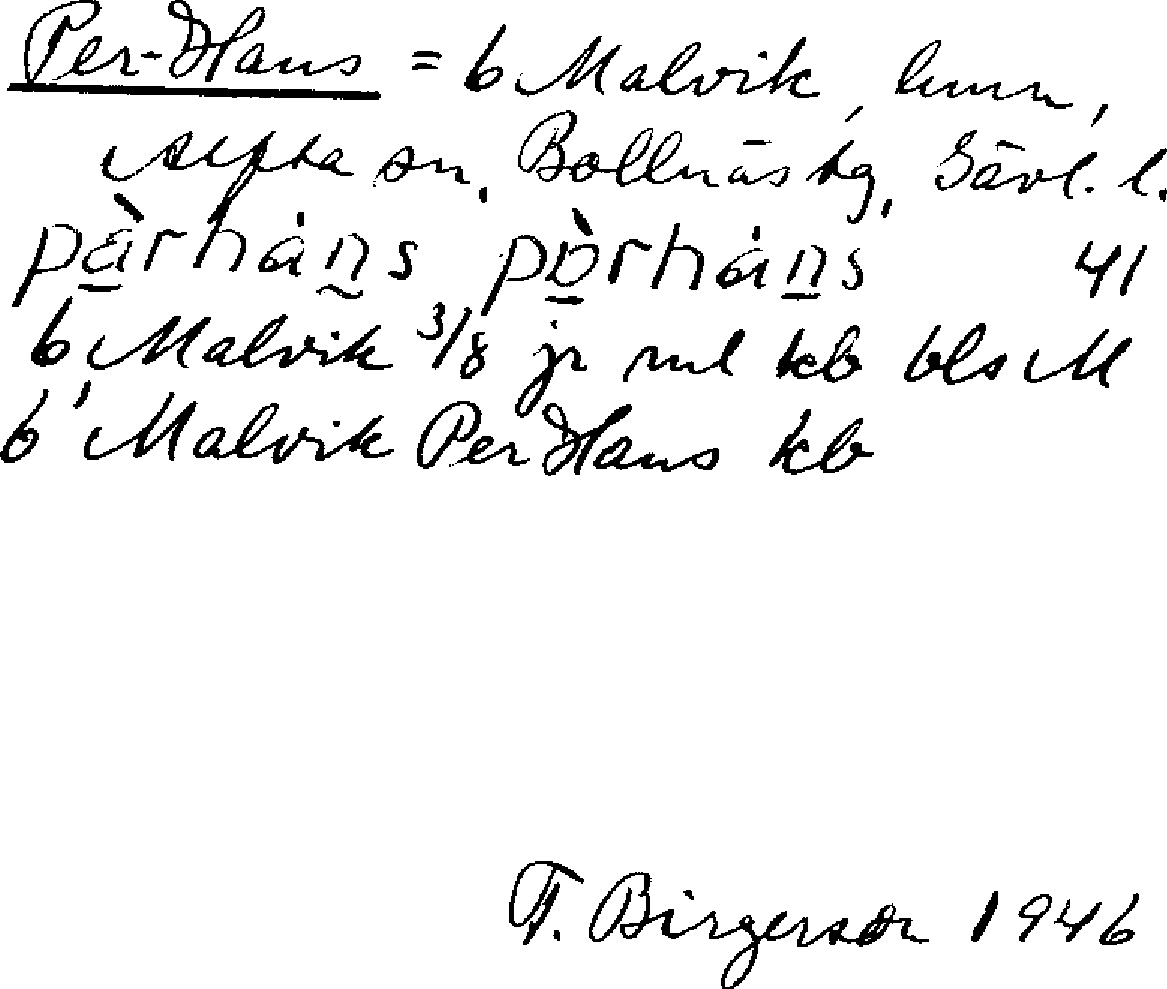 Per-Hans = 6 Malvik, hmn,
Alfta sn, Bollnäs tg, Gävl. l.
pàrháns pòrháns 41
6 Malvik 3/8 jr ml kb bls M
6' Malvik Per Hans kb
F. Birgerson 1946